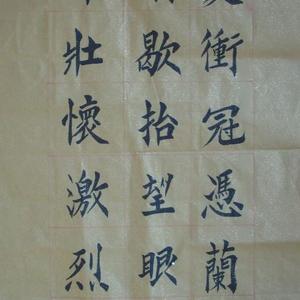 衝冠憑蘭
歇抬望眼
壯懷激烈